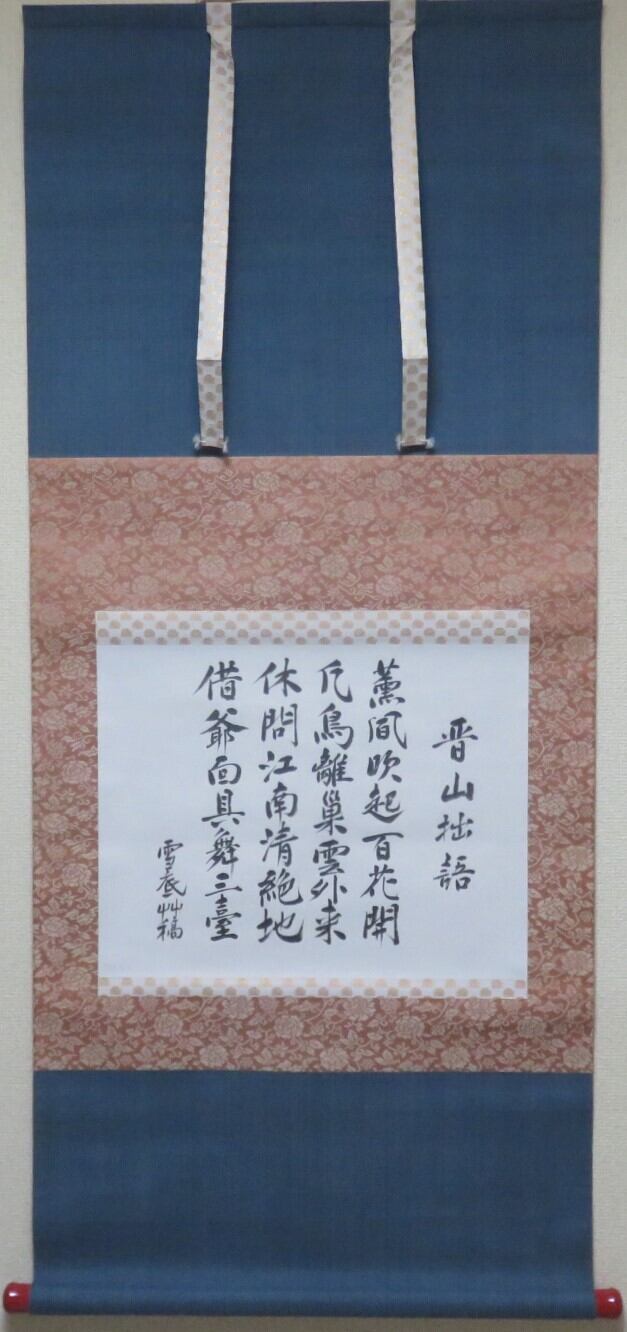 晋山拙語
薫風吹起百花開
凡鳥離巣雲外来
休問江南清絶地
借爺面具舞三臺
雪底艸稿